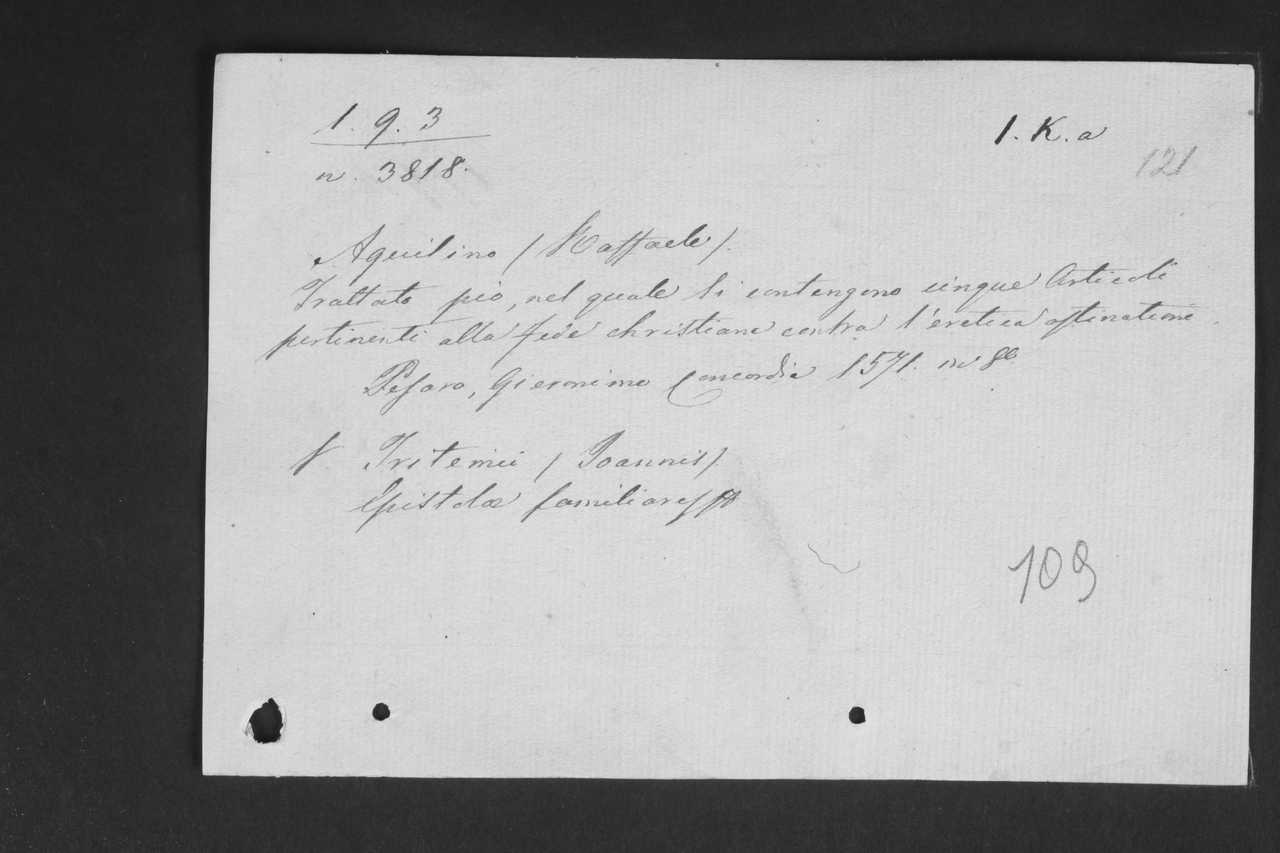 1. 9. 3
1. K. a
n. 3818.
121
Aquilino (Raffaele).
Trattato pio, nel quale si contengono cinque Articoli
pertinenti alla fede christiana contra l'eretica
Pesaro, Gieronimo Concordia 1571. in 8º
Tritemii (Joannis).
Epistolæ familiares
109